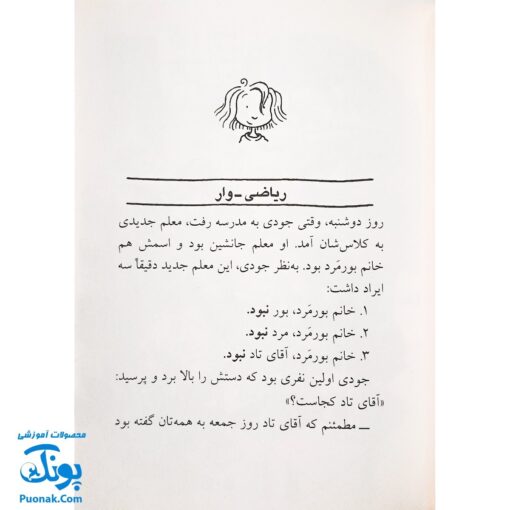 ریاضی-وار
روز دوشنبه، وقتی جودی به مدرسه رفت، معلم جدیدی
به کلاس‌شان آمد. او معلم جانشین بود و اسمش هم
خانم بورمَرد بود. به‌نظر جودی، این معلم جدید دقیقاً سه
ایراد داشت:
۱. خانم بورمَرد، بور نبود.
۲. خانم بورمَرد، مرد نبود.
۳. خانم بورمَرد، آقای تاد نبود.
جودی اولین نفری بود که دستش را بالا برد و پرسید:
«آقای تاد کجاست؟»
ــ مطمئنم که آقای تاد روز جمعه به همه‌تان گفته بود
محصولات آموزشی
پونک
Puonak.Com